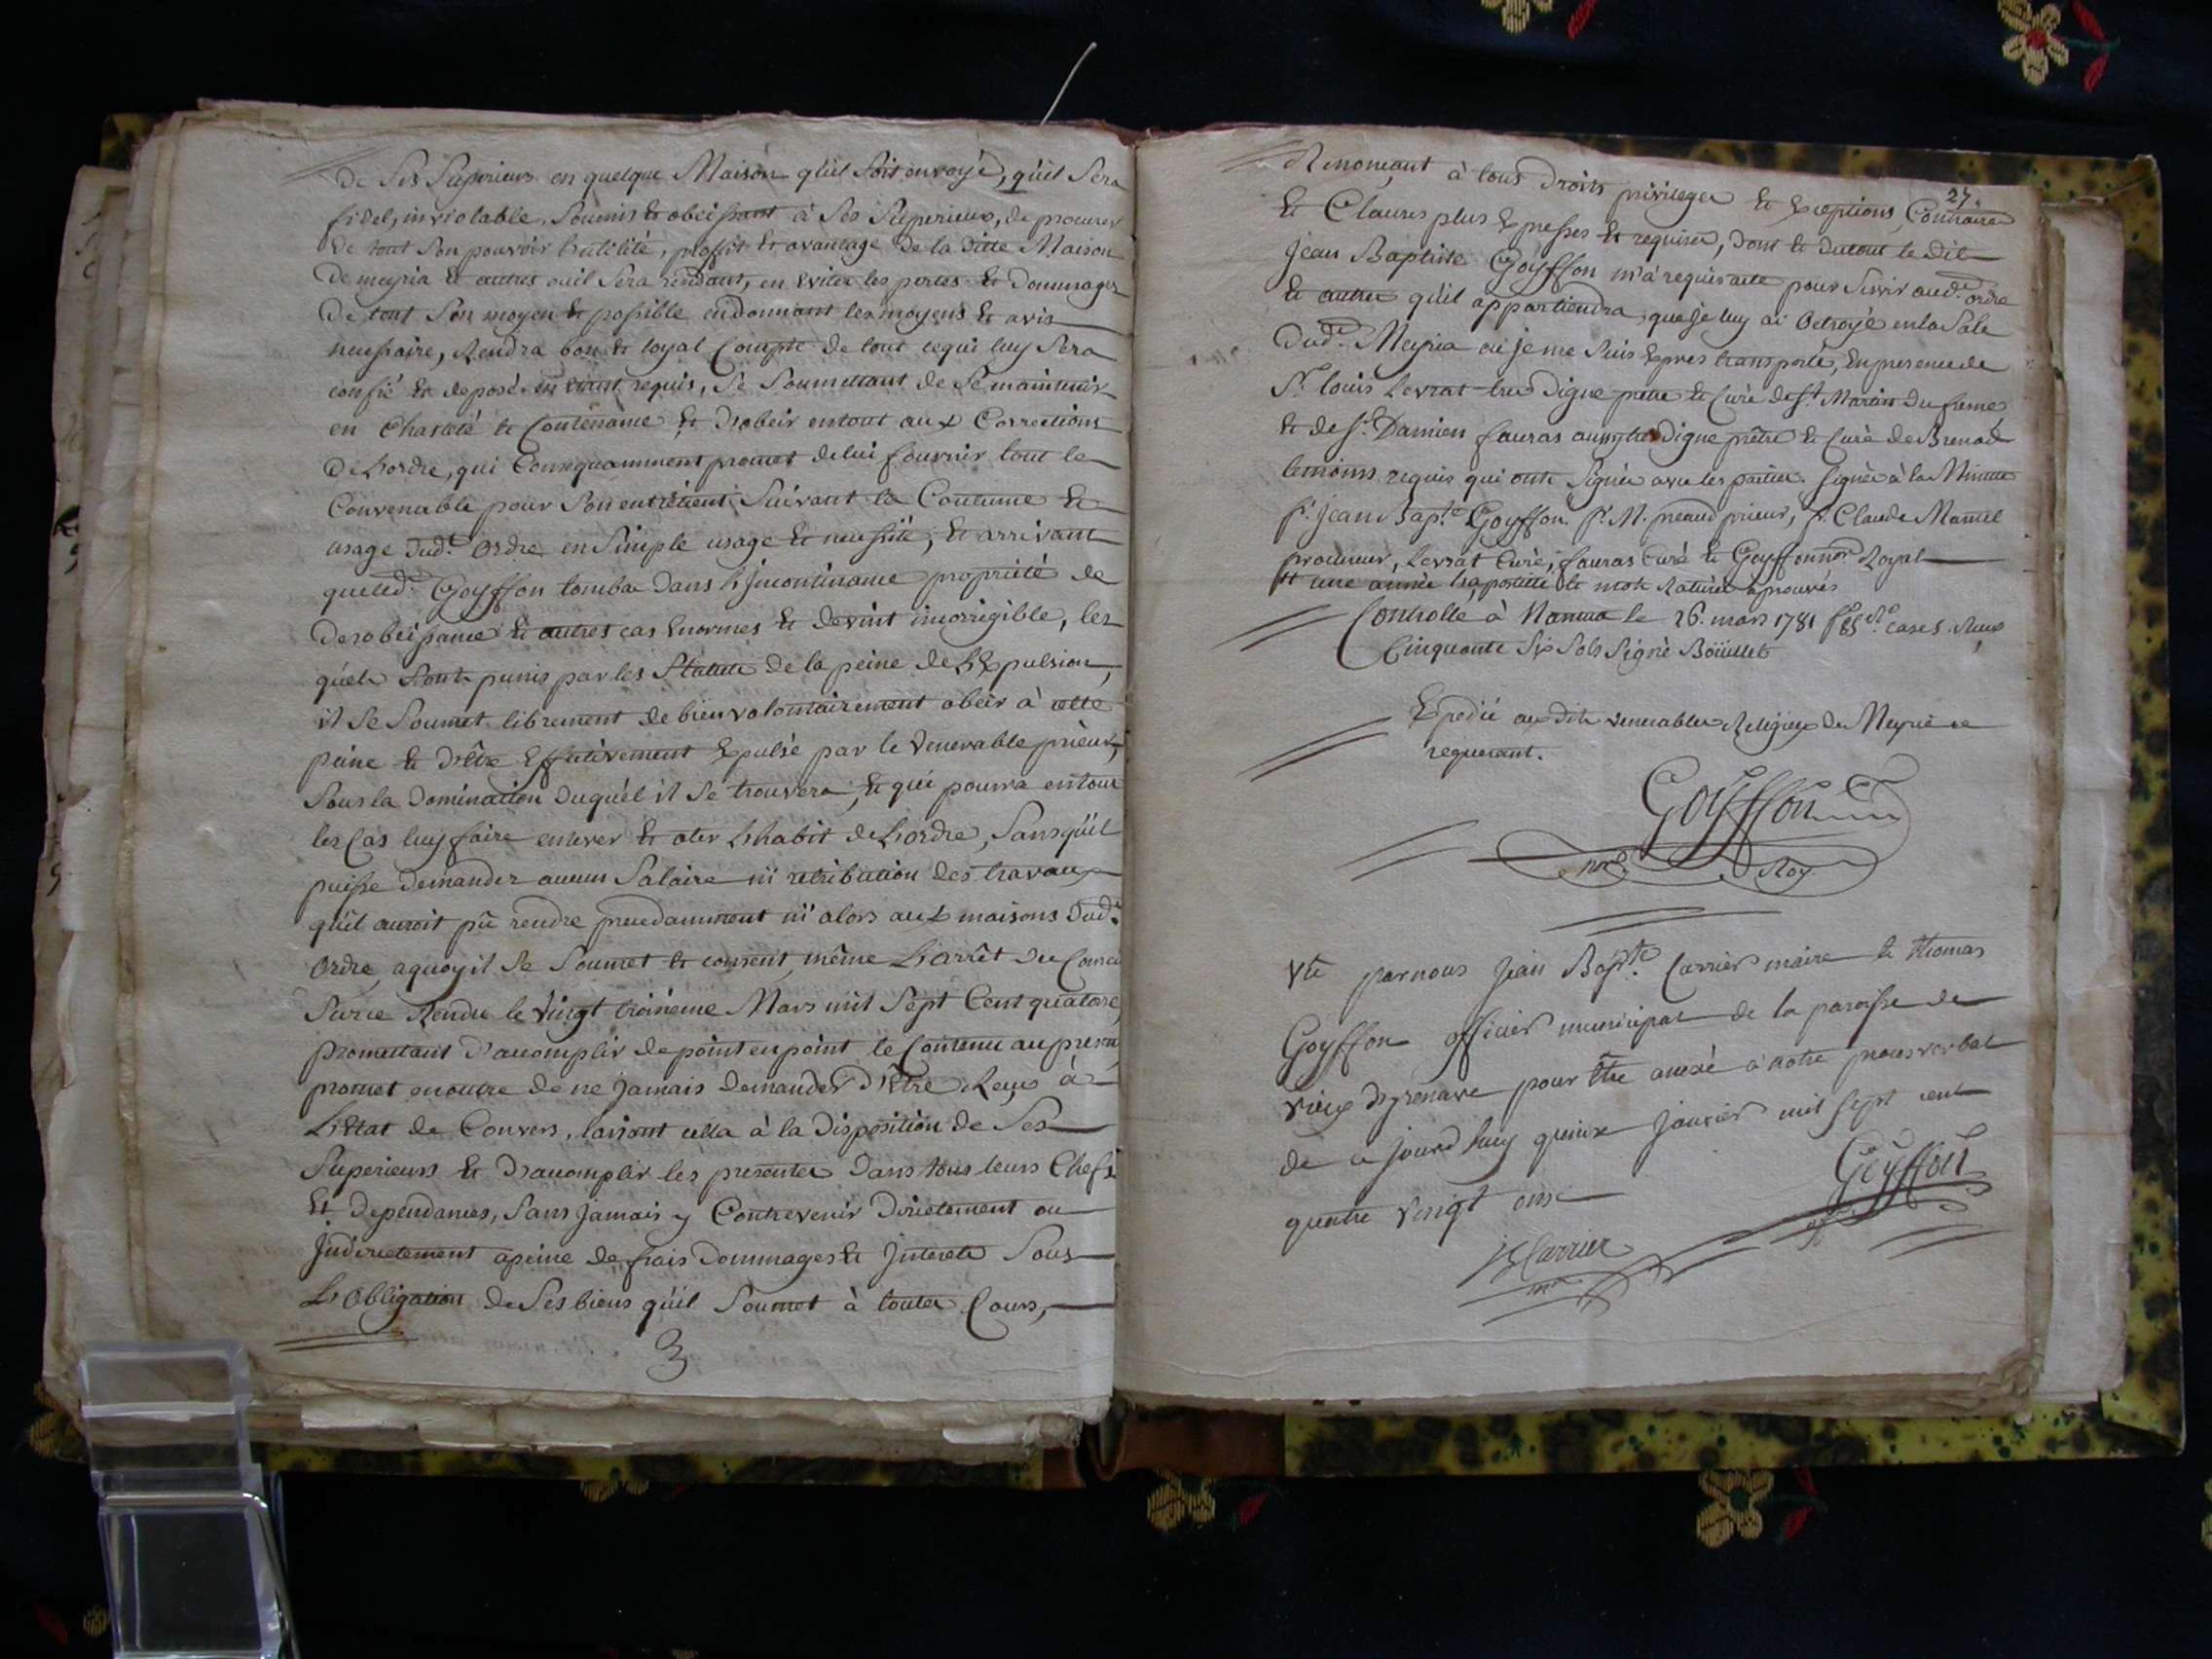 de ses Superieurs en quelque Maison qu'il soit envoyé, qu'il sera
fidel, inviolable, soumis et obeissant à ses Superieurs, de procurer
de tout son pouvoir l'utilité, proffit et avantage de la ditte Maison
de meyria et autres ou il sera residant, en eviter les pertes et dommages
de tout son moyen et possible en donnant les moyens et avis
necessaire, Rendra bon et loyal Compte de tout ce qui luy sera
confié et deposé en etant requis, se soumettant de se maintenir
en Chasteté et Contenance et d'obeir en tout aux Corrections
de L'ordre, qui Consequamment promet de lui fournir tout le
Convenable pour son entretient suivant la Coutume et
usage dud.t ordre en simple usage et necessité, et arrivant
que led.t Goyffon tomba dans L'incontinance propriété de
desobeissance et autres cas Enormes et devint incorrigible, les
quels sont punis par les Statuts de la peine de L'Expulsion,
il se soumet librement de bien volontairement obeir à cette
peine et d'être Effectivement Expulsé par le venerable prieur,
sous la Domination duquel il se trouvera, et qui pourra en tout
les Cas luy faire enlever et oter L'habit de L'ordre, sans qu'il
puisse demander aucun Salaire ni retribution des travaux
qu'il auroit pû rendre precedamment ni alors aux maisons dud.t
Ordre, a quoy il se soumet et consent même L'arrêt du Conseil
Rendu le vingt troisieme Mars mil sept Cent quatorze,
promettant d'accomplir de point en point le Contenu au present
promet en outre de ne jamais demander d'Etre Reçu à
L'Etat de Convers, laissant cella à la disposition de ses
Superieurs et d'accomplir les presentes dans tous leurs Chefs
et dependances, sans jamais y Contrevenir directement ou
indirectement a peine de frais dommages et Interets sous
L'Obligation de ses biens qu'il soumet à toutes Cours,
3
27.
Renonçant à tous droits privileges et Exceptions Contraires
et Clauses plus Expresses et requises, dont et du tout le dit
jean Baptiste Goyffon m'a requis acte pour servir aud.t ordre
et autres qu'il appartiendra, que je luy ai Octroyé en la Sale
dud.t Meyria ou je me suis Exprès transporté, En presence de
S.r louis Levrat tres digne prêtre et Curé de S.t Martin du fresne
et de S.r Damien fauras aussy tres digne prêtre et Curé de Brenod
temoins requis qui ont signés avec les parties. signés à la Minute
f.r jean Bap.te Goyffon. f.r M. preaud prieur, f.r Claude Manuel
procureur, Levrat Curé, fauras Curé et Goyffon no.re Royal
une année la et mots Raturés aprouvés
Controlle à Nantua le 26. mars 1781 f.o 85 case 5. Reçu
Cinquante six sols signé Boüillet
Expedié aux dits venerables Religieux de Meyria ce
requerant.
Goyffon
no.re Roy.
vu par nous Jean Bap.te Carrier maire et thomas
Goyffon officier municipal de la paroisse de
vieux d'yzenave pour être anexé à notre procesverbal
de ce jourd huy quinze janvier mil sept cent
quatre vingt onze
Goyffon
of
JB Carrier
m.re